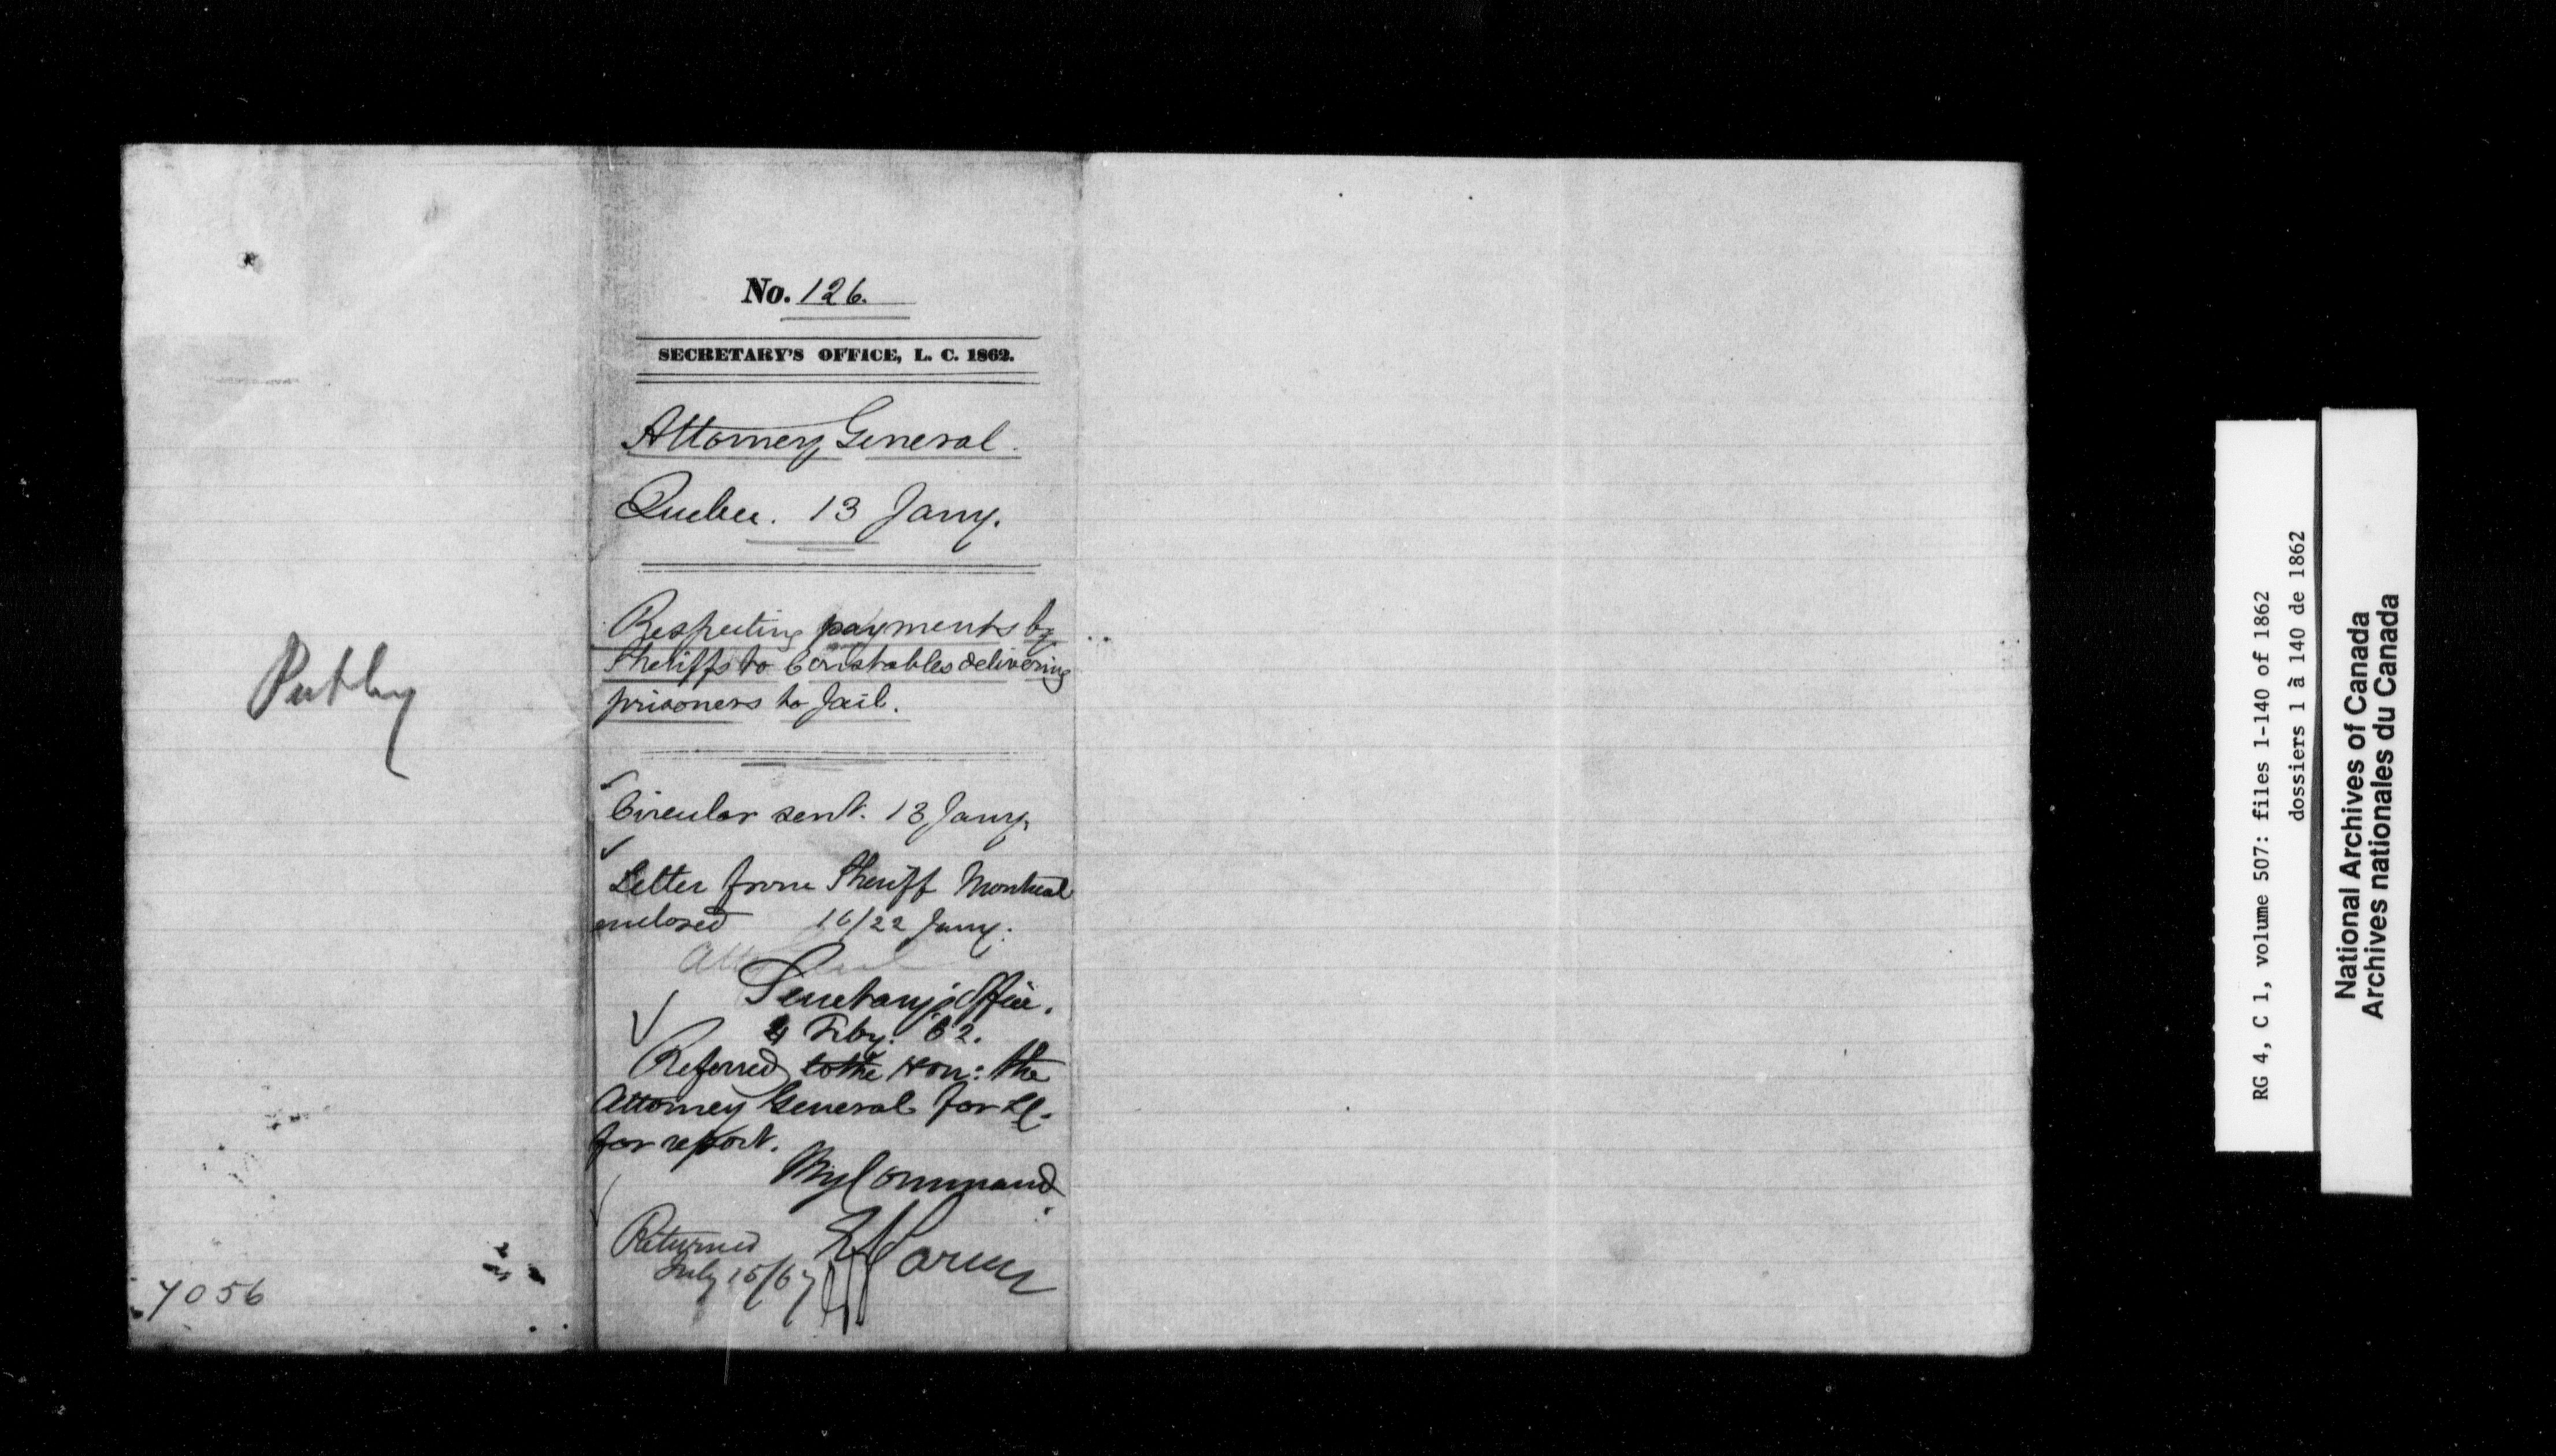 Put by
7056
No. 126.
SECRETARY'S OFFICE, L. C. 1862.
Attorney General.
Quebec. 13 Jany.
Respecting payments by
Sheriffs to Constables delivering
prisoners to Jail.
Circular sent. 13 Jany.
Letter from Sheriff Montreal
enclosed 16/22 Jany.
Secretary's Office.
4 Feby. 62.
Referred to the Hon: the
Attorney General for LC.
for report.
By Command.
Returned
July 15/67
RG 4, C 1, volume 507: files 1-140 of 1862
dossiers 1 à 140 de 1862
National Archives of Canada
Archives nationales du Canada